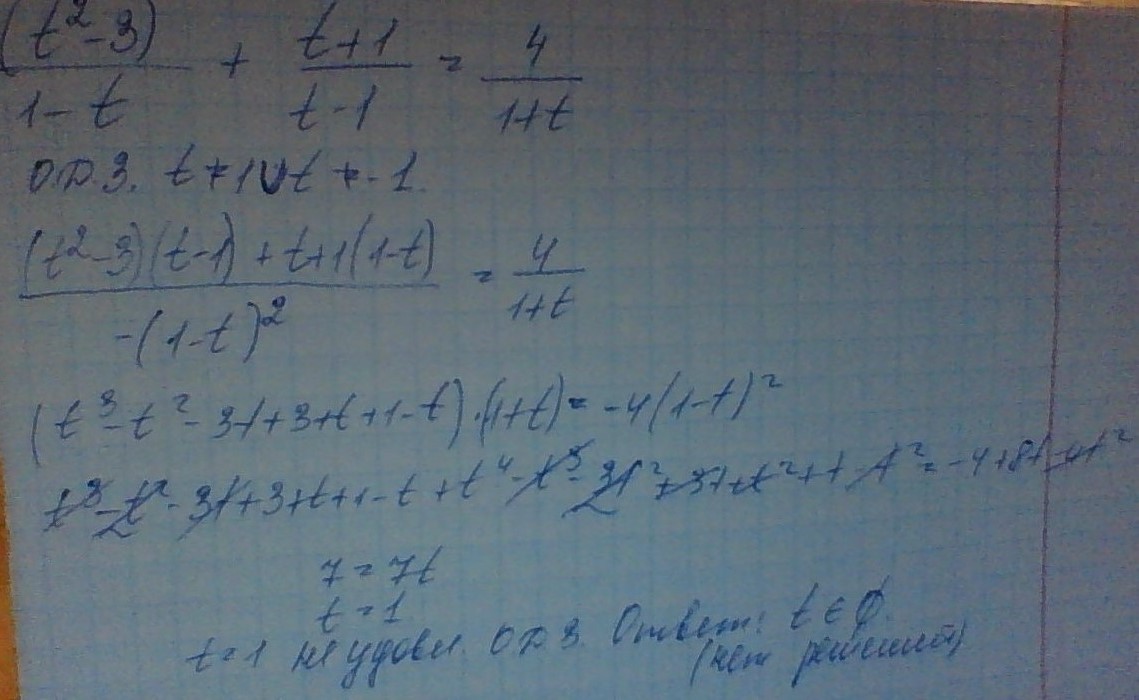 (t²-3)/(1-t) + (t+1)/(t-1) = 4/(1+t)
О.Д.З. t≠1 U t≠-1.
((t²-3)(t-1)+t+1(1-t))/(-(1-t)²) = 4/(1+t)
(t³-t²-3t+3+t+1-t)·(1+t)=-4(1-t)²
t³-t²-3t+3+t+1-t+t⁴-t³-3t²+3t+t²+t-t²=-4+8t-4t²
7=7t
t=1
t=1 не удовл. О.Д.З. Ответ: t∈∅.
(нет решений)